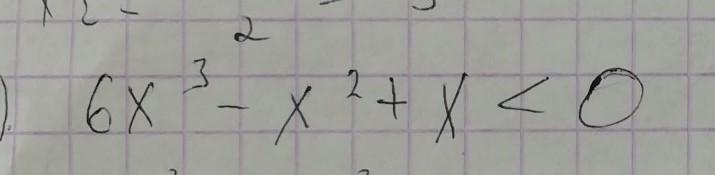 6x³ - x² + x < 0